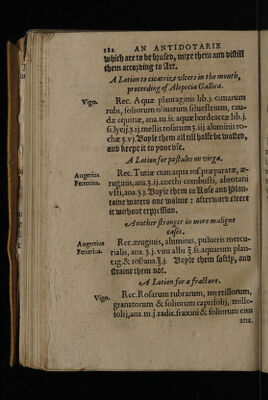 182 AN ANTIDOTARIE
which are to be brused, mixe them and distill
them according to Art.
A Lotion to cicatrize vlcers in the mouth,
proceeding of Alopecia Gallica.
Vigo. Rec. Aquæ plantaginis lib.j. cimarum
rubi, foliorum oliuarum siluestrium, cau-
dæ equinæ, ana.m.ss. aquæ hordeaceæ lib.j.
ss.lycij.ʒij.mellis rosarum ʒ.iij aluminis ro-
chæ ʒ.vj. Boyle them all till halfe be wasted,
and keepe it to your vse.
A Lotion for pustules on virga.
Augerius
Ferrerius.
Rec. Tutiæ cum aqua ros. præparatæ, æ-
ruginis, ana.ʒ.ij. anethi combusti, abrotani
vsti, ana.ʒ.j. Boyle them in Rose and Plan-
taine waters one walme: afterward streee
it without expression.
Another stronger in more maligne
cases.
Augerius
Ferrerius.
Rec. æruginis, aluminis, pulueris mercu-
rialis, ana.ʒ.j. vini albi ℥.ss. aquarum plan-
tag.& rosarū.℥.j. Boyle them softly, and
straine them not.
A Lotion for a fracture.
Vigo. Rec. Rosarum rubrarum, myrtillorum,
granatorum & foliorum caprifolij, mille-
folij, ana.m.j. radic. fraxini & foliorum eius
ana.